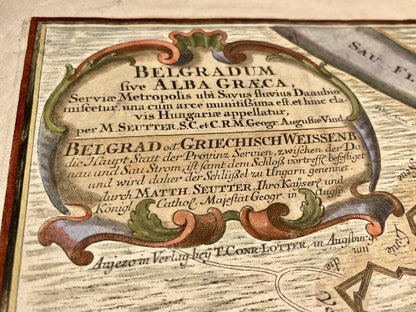 BELGRADUM
sive ALBA GRÆCA,
Serviæ Metropolis ubi Savus fluvius Danubio
miscetur, una cum arce munitißima est, et hinc cla-
vis Hungariæ appellatur,
per M. SEUTTER, S.C. et C.R.M. Geogr. Augustæ Vind.
BELGRAD od. GRIECHISCH WEISSENB.
die Haupt Statt der Provinz Servien, zwischen der Do-
nau und Sau Strom, ist samt dem Schloß vortrefl. befestiget
und wird daher der Schlüßel zu Ungarn genennet
durch MATTH. SEUTTER, Ihro Kaiserl. und
Königl. Cathol. Majestat Geogr. in Augsp.
Anjezo in Verlag bey T. CONR. LOTTER, in Augsburg.
SAU FL
um
die